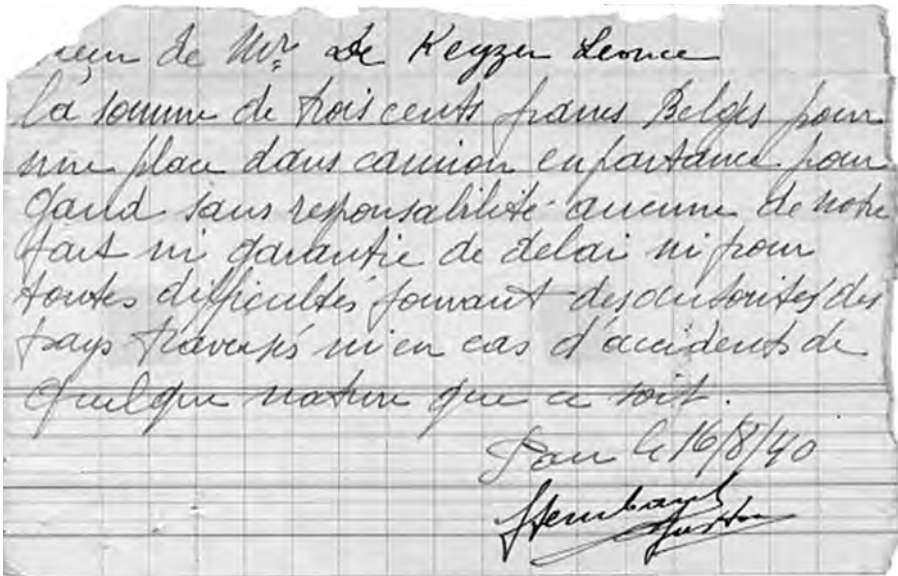 reçu de Mr De Keyzer Leonce
la somme de trois cents francs Belges pour
une place dans camion en partance pour
Gand sans responsabilité aucune de notre
part ni garantie de delai ni pour
toutes difficultés pouvant des autorités des
pays traversés ni en cas d'accidents de
quelque nature que ce soit.
Pau le 16/8/40